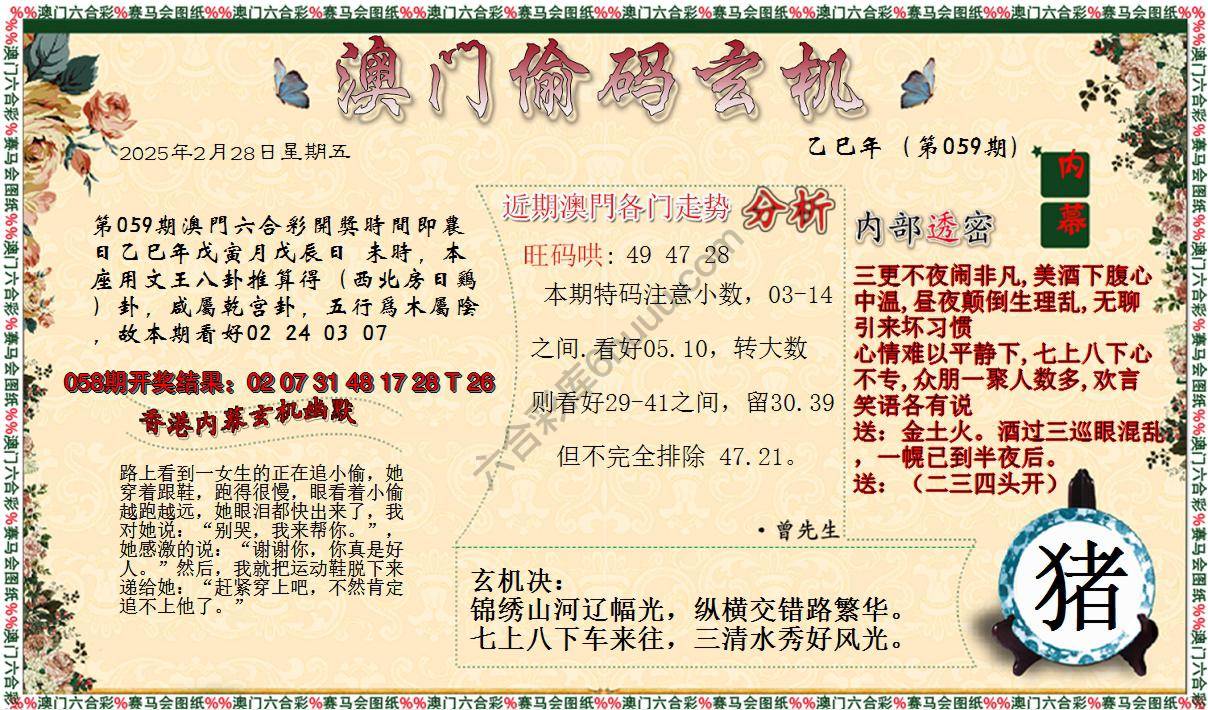 %%澳门六合彩%赛马会图纸%%澳门六合彩%赛马会图纸%%澳门六合彩%赛马会图纸%%澳门六合彩%赛马会图纸%%澳门六合彩%赛马会图纸%%澳门六合彩%赛马会图纸%%
澳门偷码玄机
2025年2月28日星期五
乙巳年（第059期）
内幕
第059期澳門六合彩開獎時間即農
日乙巳年戊寅月戊辰日 未時，本
座用文王八卦推算得（西北房日鷄
）卦，咸屬乾宫卦，五行爲木屬陰
，故本期看好02 24 03 07
058期开奖结果：02 07 31 48 17 28 T 26
香港内幕玄机幽默
路上看到一女生的正在追小偷，她
穿着跟鞋，跑得很慢，眼看着小偷
越跑越远，她眼泪都快出来了，我
对她说：“别哭，我来帮你。”，
她感激的说：“谢谢你，你真是好
人。”然后，我就把运动鞋脱下来
递给她：“赶紧穿上吧，不然肯定
追不上他了。”
近期澳門各门走势 分析
旺码哄: 49 47 28
本期特码注意小数，03-14
之间.看好05.10，转大数
则看好29-41之间，留30.39
但不完全排除 47.21。
·曾先生
内部透密
三更不夜闹非凡,美酒下腹心
中温,昼夜颠倒生理乱,无聊
引来坏习惯
心情难以平静下,七上八下心
不专,众朋一聚人数多,欢言
笑语各有说
送：金土火。酒过三巡眼混乱
，一幌已到半夜后。
送：（二三四头开）
玄机决：
锦绣山河辽幅光，纵横交错路繁华。
七上八下车来往，三清水秀好风光。
猪
%%澳门六合彩%赛马会图纸%%澳门六合彩%赛马会图纸%%澳门六合彩%赛马会图纸%%澳门六合彩%赛马会图纸%%澳门六合彩%赛马会图纸%%澳门六合彩%赛马会图纸%%